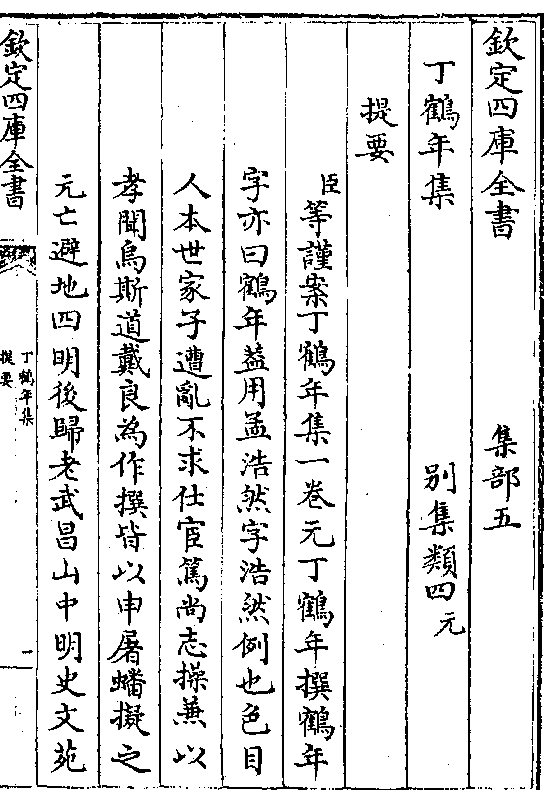 欽定四庫全書 集部五
丁鶴年集 别集類四元
提要
臣等謹案丁鶴年集一卷元丁鶴年撰鶴年
字亦曰鶴年葢用孟浩然字浩然例也色目
人本世家子遭亂不求仕宦篤尚志操兼以
孝聞烏斯道戴良為作撰皆以申屠蟠擬之
元亡避地四明後歸老武昌山中明史文苑
欽定四庫全書
丁鶴年集
提要
一